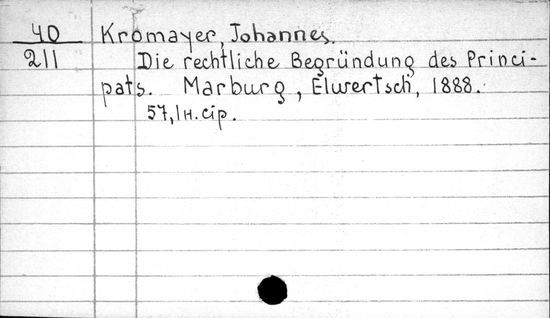 40 Kromayer, Johannes.
211 Die rechtliche Begründung des Princi-
pats. Marburg, Elwertsch, 1888.
57, 1 н. стр.